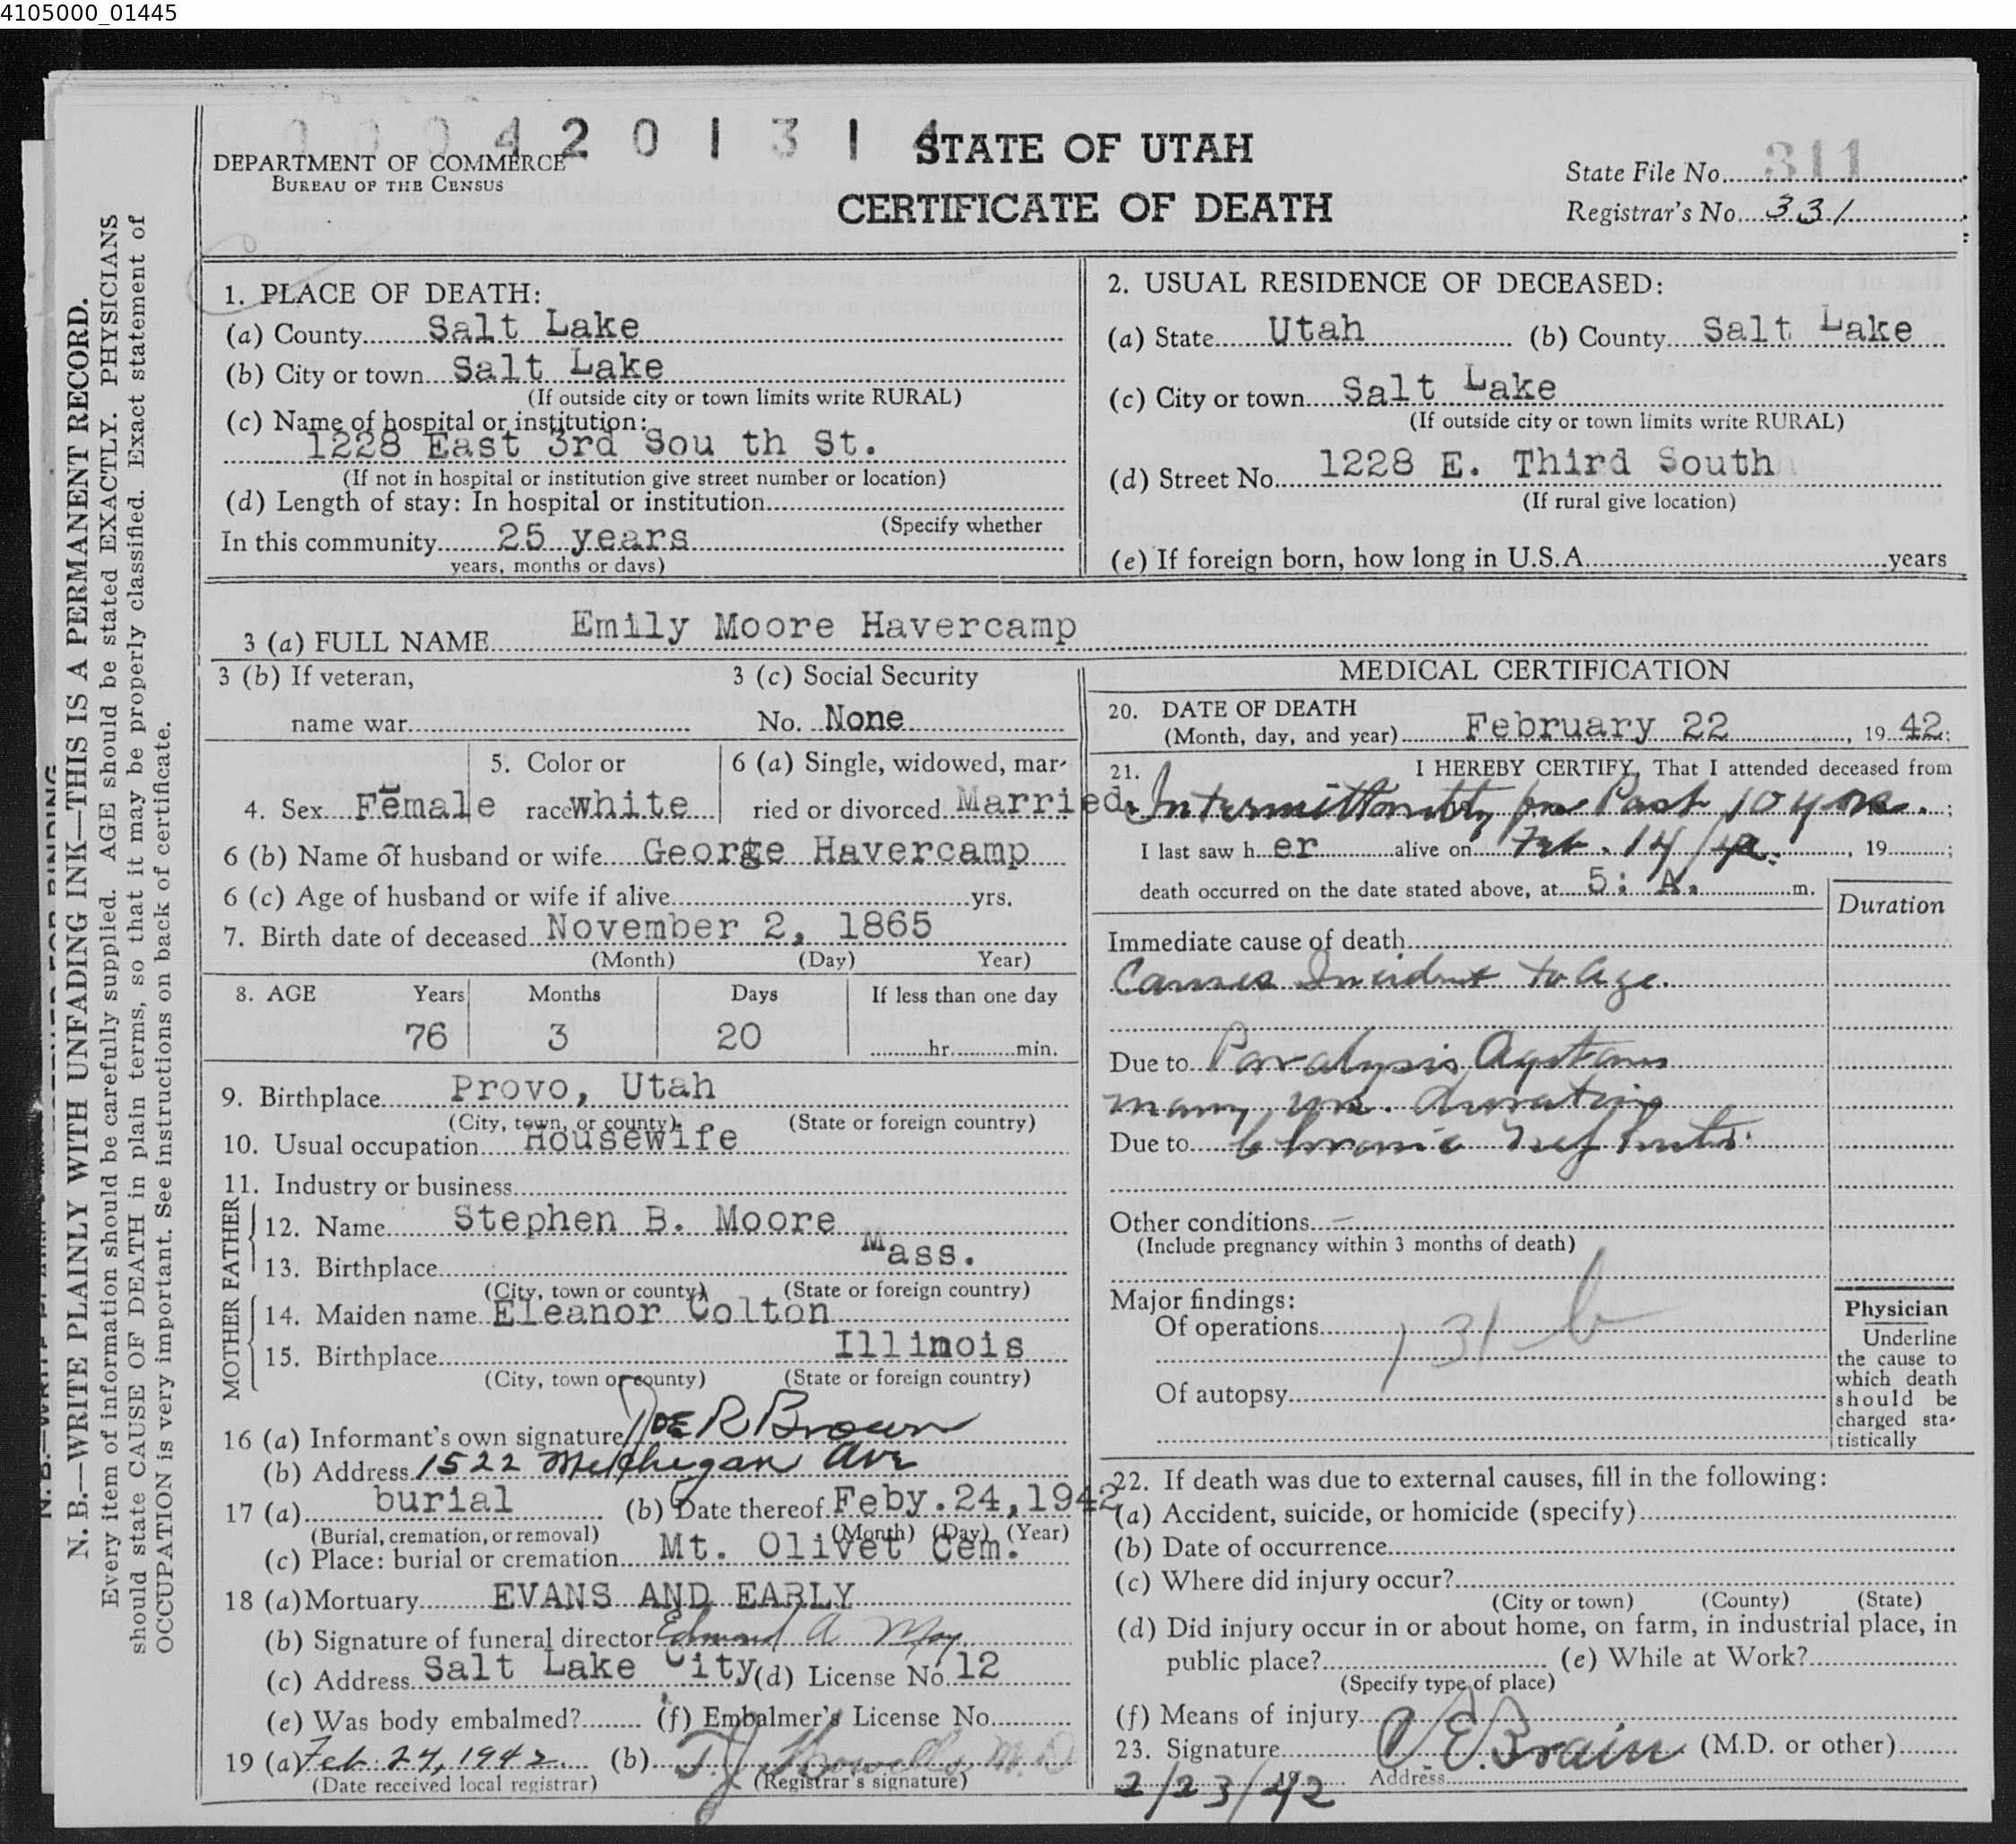 4105000_01445
0 0 0 9 4 2 0 1 3 1 4
DEPARTMENT OF COMMERCE
BUREAU OF THE CENSUS
STATE OF UTAH
CERTIFICATE OF DEATH
State File No. 311
Registrar's No. 331
N. B.—WRITE PLAINLY WITH UNFADING INK—THIS IS A PERMANENT RECORD.
Every item of information should be carefully supplied. AGE should be stated EXACTLY. PHYSICIANS
should state CAUSE OF DEATH in plain terms, so that it may be properly classified. Exact statement of
OCCUPATION is very important. See instructions on back of certificate.
1. PLACE OF DEATH:
(a) County Salt Lake
(b) City or town Salt Lake
(If outside city or town limits write RURAL)
(c) Name of hospital or institution:
1228 East 3rd Sou th St.
(If not in hospital or institution give street number or location)
(d) Length of stay: In hospital or institution
(Specify whether
In this community 25 years
years, months or days)
2. USUAL RESIDENCE OF DECEASED:
(a) State Utah (b) County Salt Lake
(c) City or town Salt Lake
(If outside city or town limits write RURAL)
(d) Street No. 1228 E. Third South
(If rural give location)
(e) If foreign born, how long in U.S.A. years
3 (a) FULL NAME Emily Moore Havercamp
3 (b) If veteran, 3 (c) Social Security
name war No. None
5. Color or 6 (a) Single, widowed, mar-
4. Sex Female race white ried or divorced Married
6 (b) Name of husband or wife George Havercamp
6 (c) Age of husband or wife if alive yrs.
7. Birth date of deceased November 2, 1865
(Month) (Day) Year)
8. AGE Years Months Days If less than one day
76 3 20 hr. min.
9. Birthplace Provo, Utah
(City, town, or county) (State or foreign country)
10. Usual occupation Housewife
11. Industry or business
FATHER
12. Name Stephen B. Moore
13. Birthplace Mass.
(City, town or county) (State or foreign country)
MOTHER
14. Maiden name Eleanor Colton
15. Birthplace Illinois
(City, town or county) (State or foreign country)
16 (a) Informant's own signature R Brown
(b) Address 1522 Michegan Ave
17 (a) burial (b) Date thereof Feby.24,1942
(Burial, cremation, or removal) (Month) (Day) (Year)
(c) Place: burial or cremation Mt. Olivet Cem.
18 (a) Mortuary EVANS AND EARLY
(b) Signature of funeral director Edmund A May
(c) Address Salt Lake City (d) License No. 12
(e) Was body embalmed? (f) Embalmer's License No.
19 (a) Feb. 24, 1942 (b) T J Howells, M.D
(Date received local registrar) (Registrar's signature)
MEDICAL CERTIFICATION
20. DATE OF DEATH
(Month, day, and year) February 22, 19 42;
21. I HEREBY CERTIFY, That I attended deceased from
Intermittently for Past 10 yrs. ;
I last saw h er alive on Feb. 14/42. , 19 ;
death occurred on the date stated above, at 5: A. m.
Duration
Immediate cause of death
Causes Incident to age.
Due to Paralysis Agitans
many yrs. duration
Due to Chronic Nephritis.
Other conditions —
(Include pregnancy within 3 months of death)
Major findings:
Of operations
131 b
Of autopsy
Physician
Underline
the cause to
which death
should be
charged sta-
tistically
22. If death was due to external causes, fill in the following:
(a) Accident, suicide, or homicide (specify)
(b) Date of occurrence
(c) Where did injury occur?
(City or town) (County) (State)
(d) Did injury occur in or about home, on farm, in industrial place, in
public place? (e) While at Work?
(Specify type of place)
(f) Means of injury
23. Signature E. Brain (M.D. or other)
2/23/42 19 Address